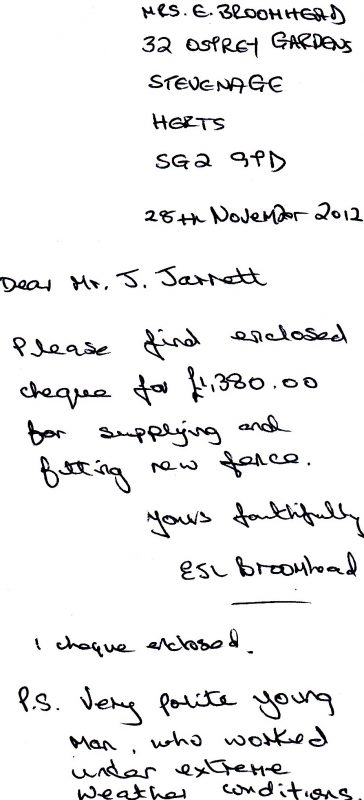 MRS. E. BROOMHEAD
32 OSPREY GARDENS
STEVENAGE
HERTS
SG2 9PD
28th November 2012
Dear Mr. J. Jarrett
Please find enclosed
cheque for £1,380.00
for supplying and
fitting new fence.
Yours faithfully
ESL Broomhead
1 cheque enclosed.
P.S. Very polite young
man, who worked
under extreme
weather conditions